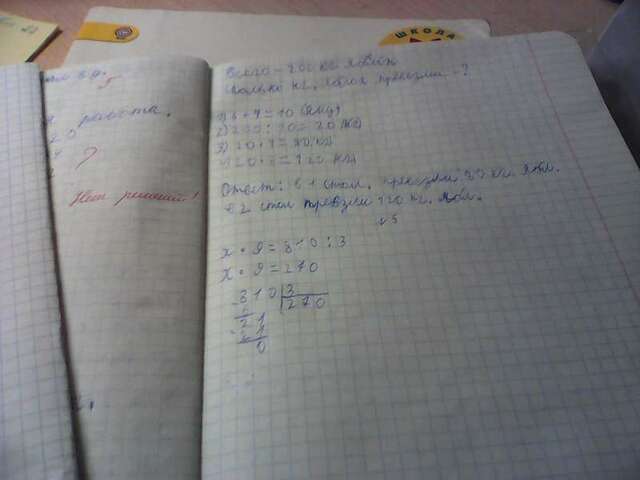 ШКОЛА
5
работа.
?
Нет решения!
Всего - 200 кг яблок
Сколько кг. яблок превезли - ?
1) 6 + 4 = 10 (ящ)
2) 200 : 10 = 20 (кг)
3) 20 · 4 = 80 (кг)
4) 20 · 6 = 120 (кг)
Ответ: в 1 стол. превезли 80 кг. ябл.
в 2 стол превзли 120 кг. ябл.
х · 9 = 810 : 3
х · 9 = 270
810 3
270
6
21
21
0